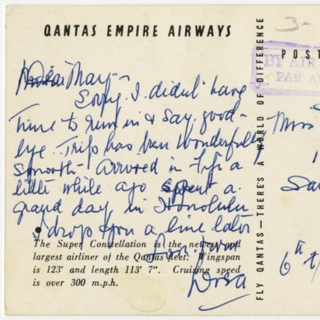 QANTAS EMPIRE AIRWAYS
Dear Mary -
Sorry I didn't have
time to run in & say good-
bye. Trip has been wonderfully
smooth - arrived in Fiji a
little while ago spent a
grand day in Honolulu
I'll drop you a line later
The Super Constellation is the newest and
largest airliner of the Qantas fleet. Wingspan
is 123' and length 113' 7". Cruising speed
is over 300 m.p.h.
Dora
FLY QANTAS—THERE'S A WORLD OF DIFFERENCE
3-
POST
BY AIR
PAR AV
Miss
6th